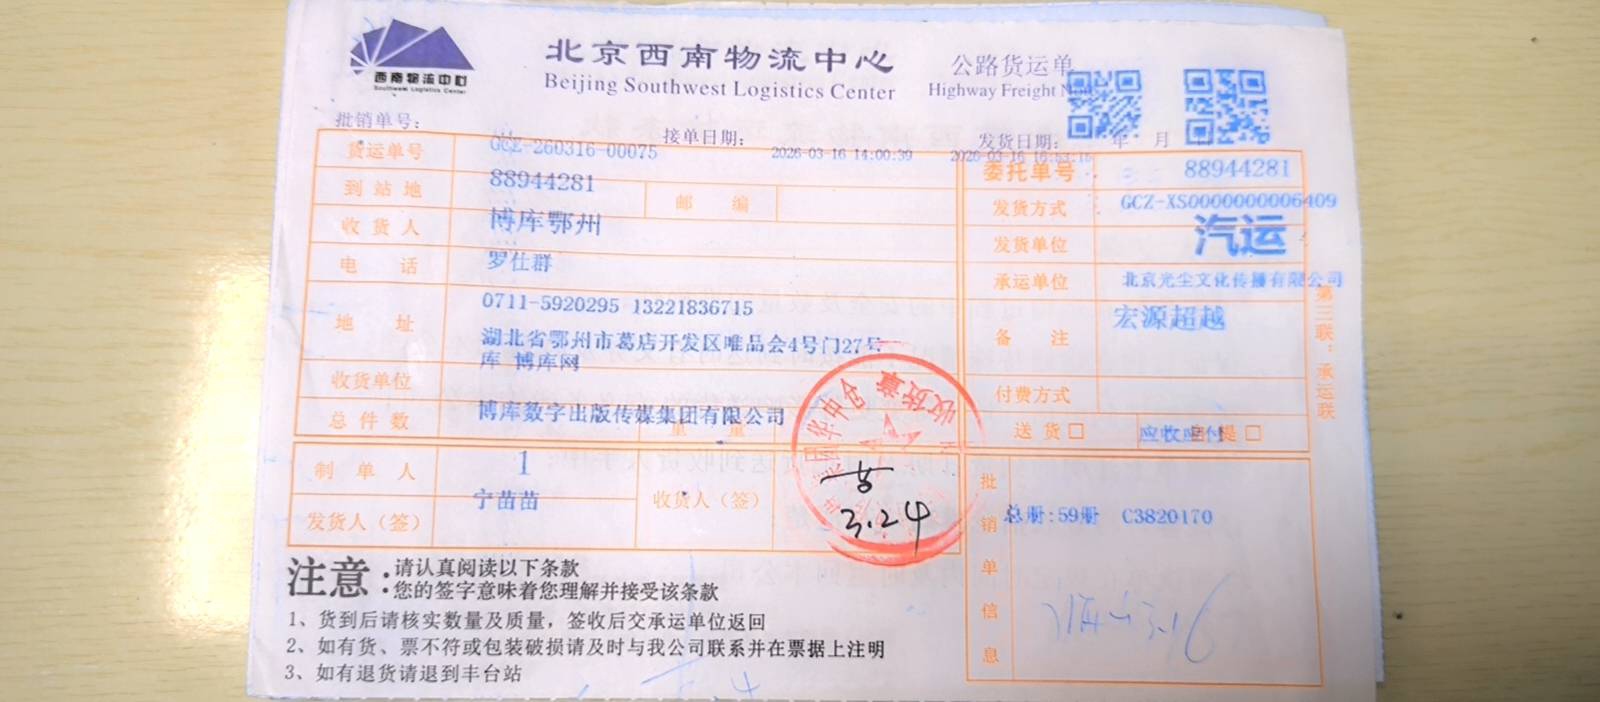 西南物流中心
Southwest Logistics Center
北京西南物流中心
Beijing Southwest Logistics Center
公路货运单
Highway Freight
批销单号：
接单日期：
2026-03-16 14:00:39
发货日期： 年 月
2026-03-16 16:53:16
货运单号 GCZ-260316-00075
委托单号 88944281
到站地 88944281 邮编
发货方式 GCZ-XS0000000006409
收货人 博库鄂州
发货单位 汽运
电话 罗仕群
承运单位 北京光尘文化传播有限公司
地址 0711-5920295 13221836715
湖北省鄂州市葛店开发区唯品会4号门27号
库 博库网
备注 宏源超越
收货单位
付费方式
总件数 博库数字出版传媒集团有限公司
重量
送货□ 应收应付 自提□
制单人 1
宁苗苗
发货人（签）
收货人（签）
收货章
3.24
批销单信息
总册:59册 C3820170
第三联：承运联
注意：
请认真阅读以下条款
您的签字意味着您理解并接受该条款
1、货到后请核实数量及质量，签收后交承运单位返回
2、如有货、票不符或包装破损请及时与我公司联系并在票据上注明
3、如有退货请退到丰台站